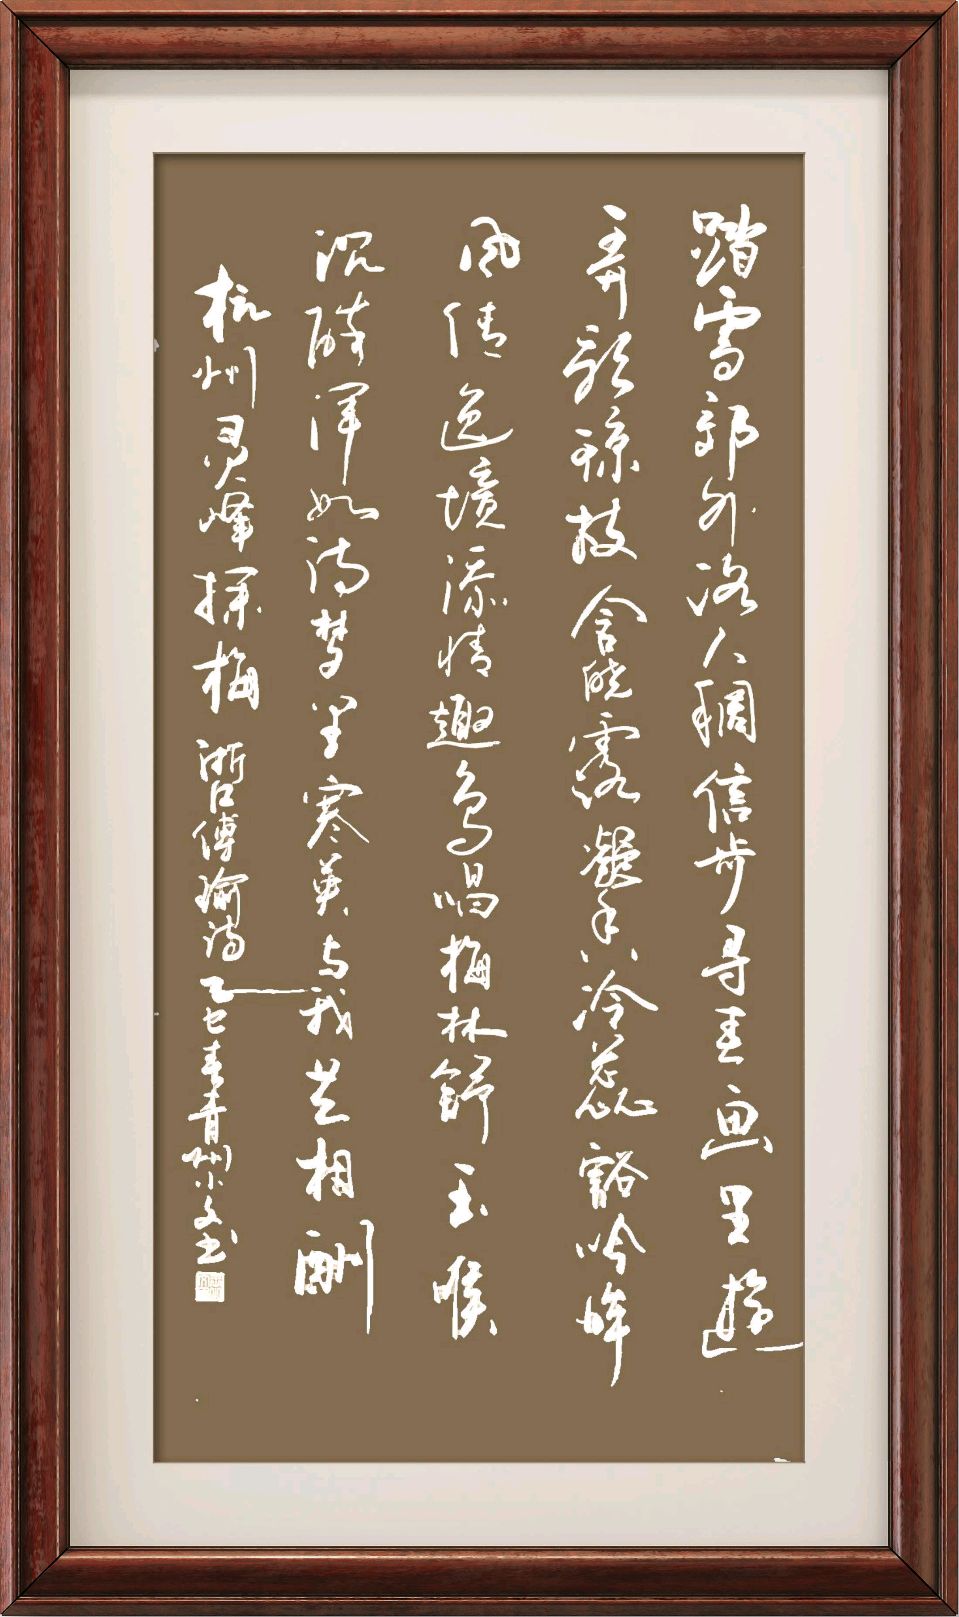 踏雪郊外洛人稠信步寻画里游
弄影琼枝含晓露凝香冷蕊豁吟眸
风倩逸境添情趣鸟唱梅林舒玉喉
沉醉浑如诗梦里寒英与我共相酬
杭州灵峰探梅 浙傅瑜诗 乙巳春青州小文书